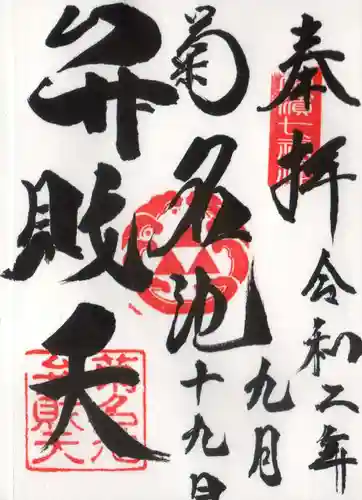 奉拝
令和二年
九月
十九日
菊名池
弁財天
菊名池
弁財天